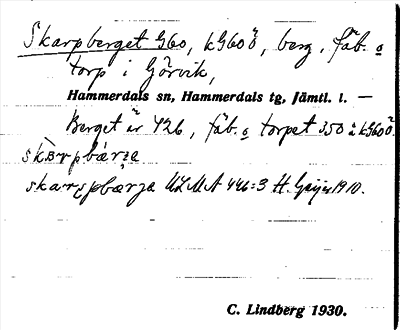 Skarpberget G60, kG60Ö, berg, fäb. o
torp i Görvik,
Hammerdals sn, Hammerdals tg, Jämtl. l. —
Berget är 426, fäb. o torpet 350 å kG60Ö.
skarpbærʒa
skarpbærʒa ULMA 446:3 H. Geijer 1910.
C. Lindberg 1930.